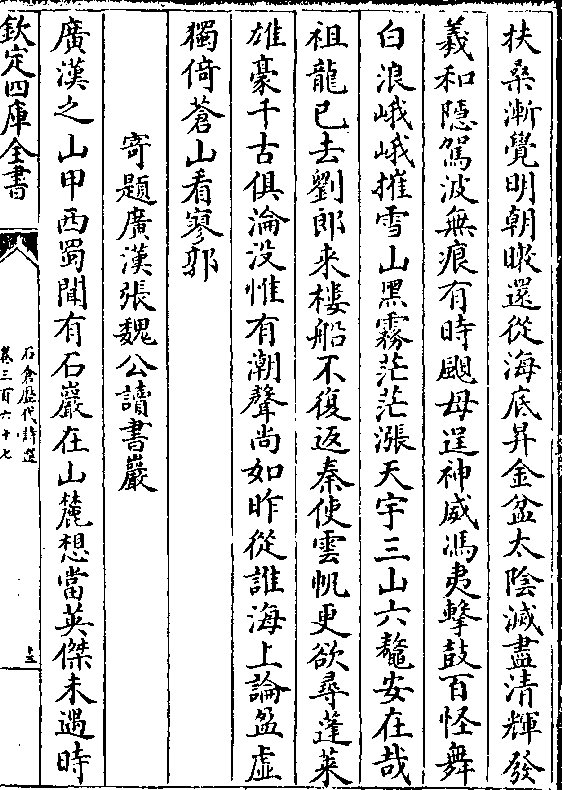 扶桑漸覺明朝暾還從海底昇金盆太陰滅盡清輝發
羲和隱駕波無痕有時颶母逞神威馮夷擊鼓百怪舞
白浪峨峨摧雪山黑霧茫茫漲天宇三山六鼇安在哉
祖龍已去劉郎来樓船不復返秦使雲帆更欲尋蓬萊
雄豪千古俱淪没惟有潮聲尚如昨從誰海上論盈虛
獨倚蒼山看寥郭
寄題廣漢張魏公讀書巖
廣漢之山甲西蜀聞有石巖在山麓想當英傑未遇時
欽定四庫全書
石倉歷代詩選
卷三百六十七
十三